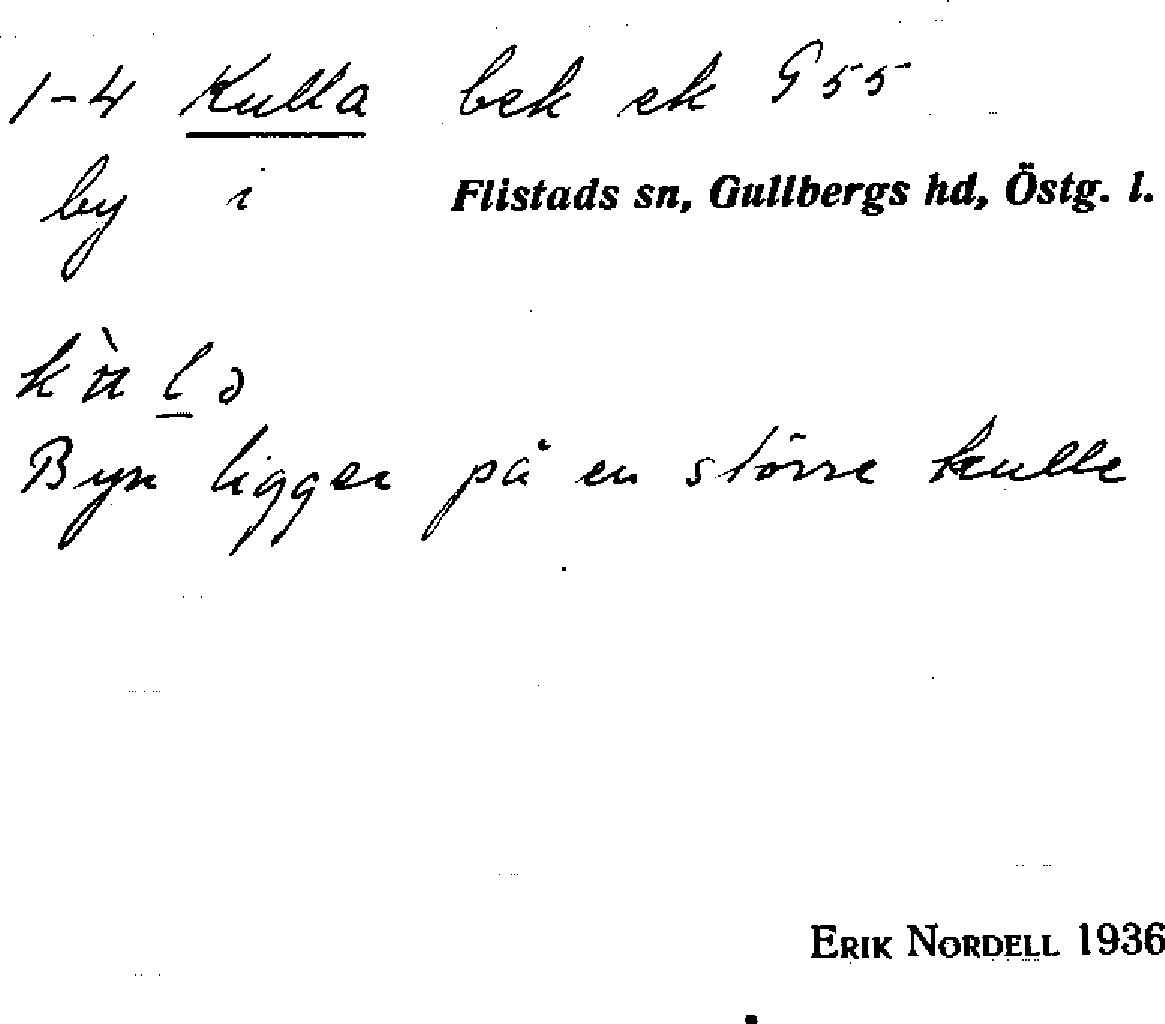 1-4 Kulla bek ek G 55
by i Flistads sn, Gullbergs hd, Östg. l.
Byn ligger på en större kulle
ERIK NORDELL 1936